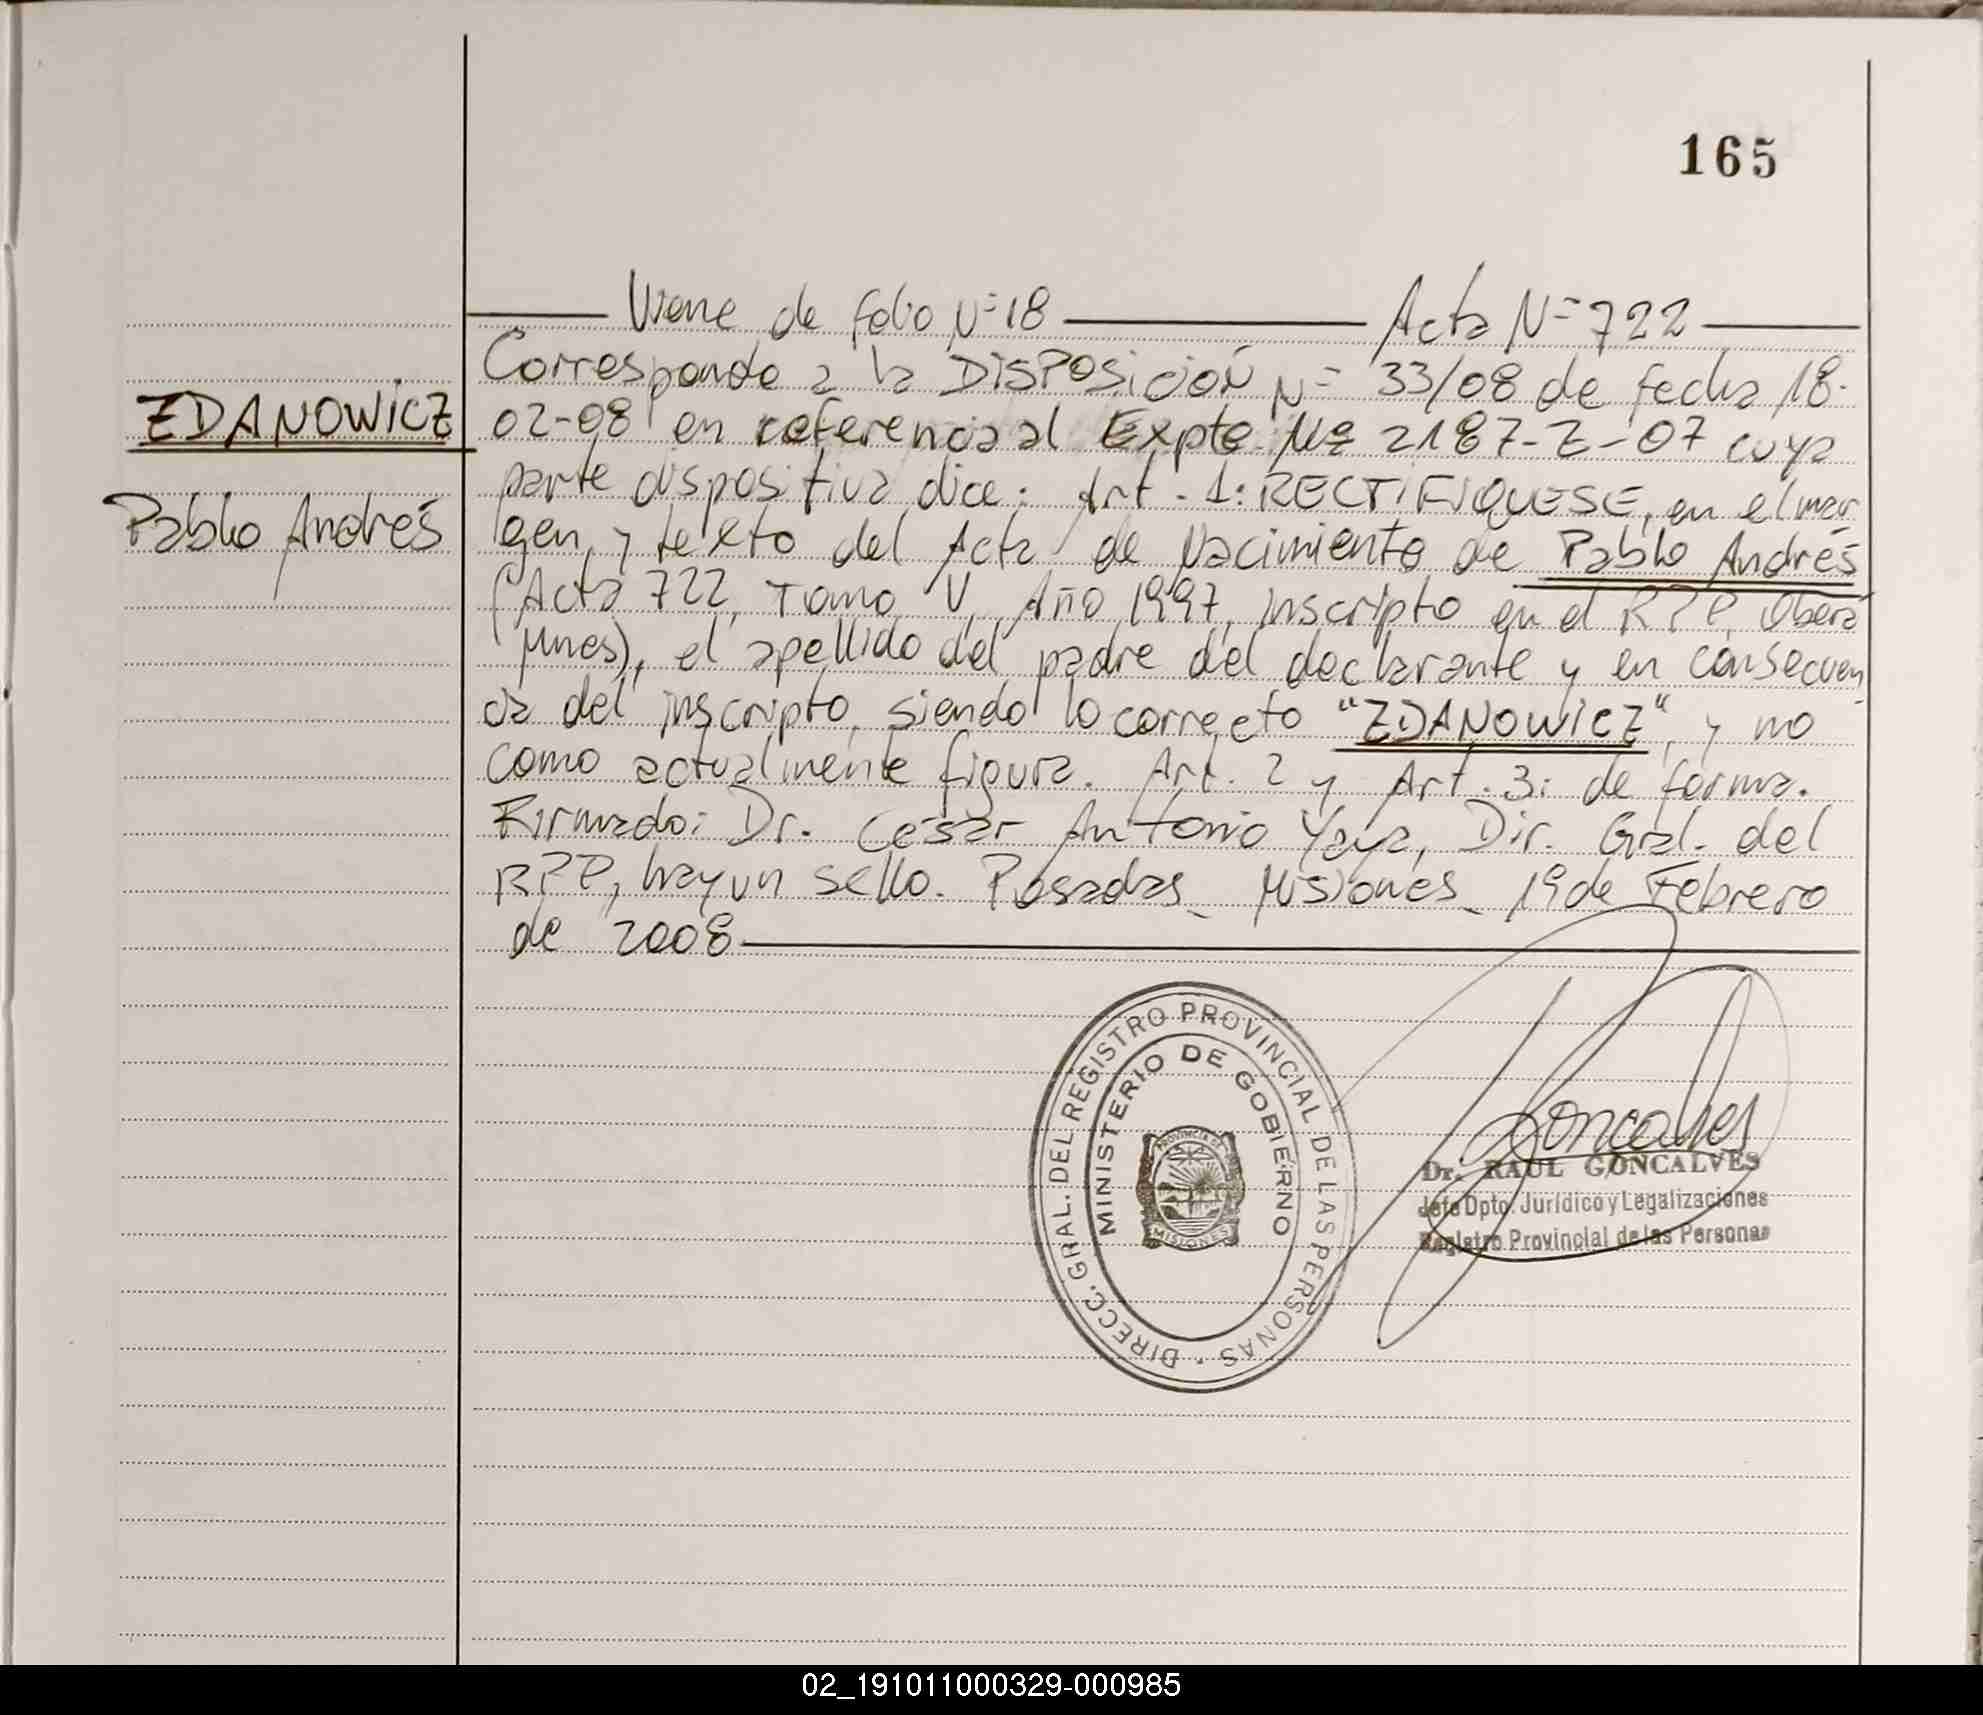 165
Viene de folio N=18 Acta N=722
Corresponde a la DISPOSICIÓN N= 33/08 de fecha 18-
ZDANOWICZ
02-08 en referencia al Expte Nº 2187-Z-07 cuya
parte dispositiva dice: Art. 1: RECTIFIQUESE, en el mar
Pablo Andrés
gen, y texto del Acta de Nacimiento de Pablo Andrés
(Acta 722, Tomo V, Año 1997, inscripto en el RPP, Oberá
Mnes), el apellido del padre del declarante y en consecuen
cia del inscripto, siendo lo correcto "ZDANOWICZ", y no
como actualmente figura. Art. 2 y Art. 3: de forma.
Firmado: Dr. César Antonio Yaya, Dir. Gral. del
RPP, hay un sello. Posadas, Misiones, 19 de Febrero
de 2008
DIRECC. GRAL. DEL REGISTRO PROVINCIAL DE LAS PERSONAS
MINISTERIO DE GOBIERNO
PROVINCIA DE
MISIONES
Goncalves
Dr. RAUL GONCALVES
Jefe Dpto. Jurídico y Legalizaciones
Registro Provincial de las Personas
02_191011000329-000985